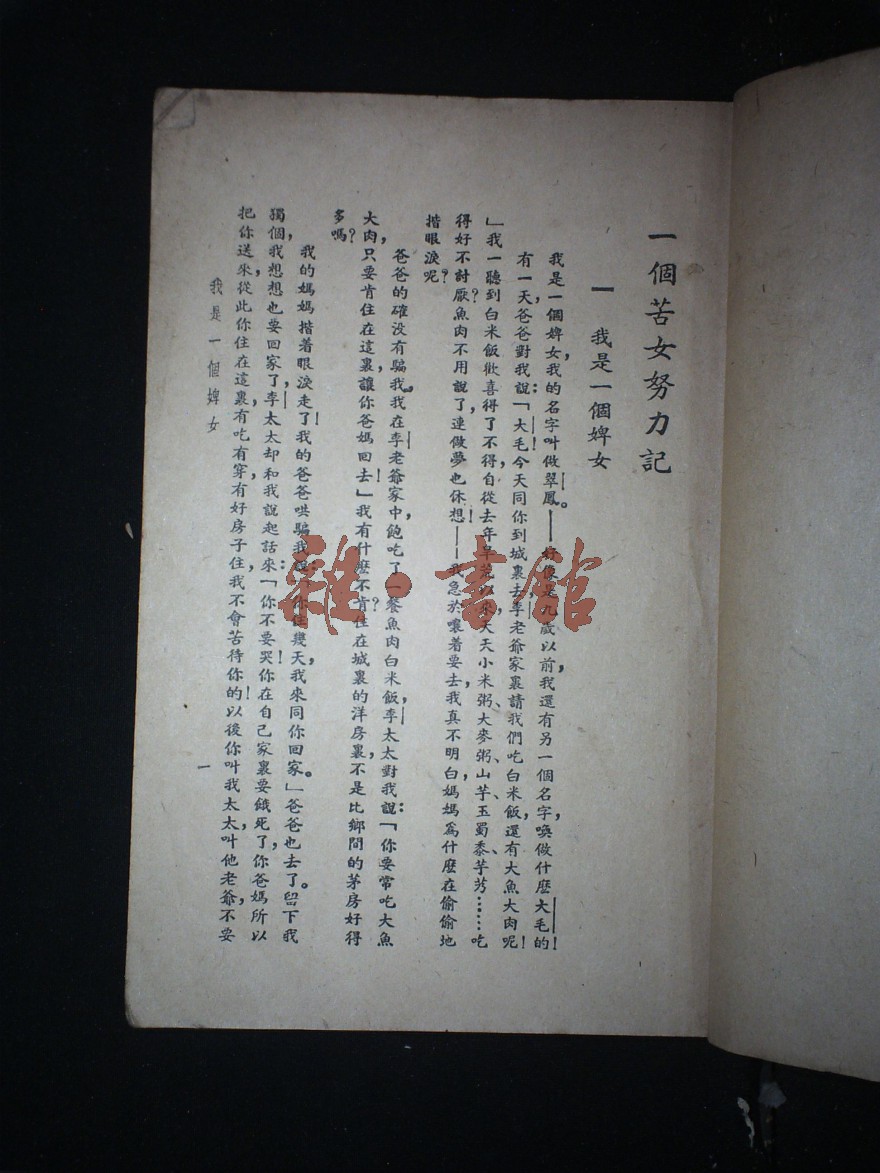 一個苦女努力記
一 我是一個婢女
我是一個婢女，我的名字叫做翠鳳。——好像是九歲以前，我還有另一個名字，喚做什麽大毛的！
有一天，爸爸對我說：「大毛！今天同你到城裏去，李老爺家裏請我們吃白米飯，還有大魚大肉呢！
」我一聽到白米飯，歡喜得了不得，自從去年旱荒以來，天天小米粥、大麥粥、山芋、玉蜀黍、芋艿……吃
得好不討厭？魚肉不用說了，連做夢也休想！——我急於嚷着要去，我真不明白媽媽爲什麽在偷偷地
揩眼淚呢？
爸爸的確没有騙我。我在李老爺家中，飽吃了一餐魚肉白米飯，李太太對我說：「你要常吃大魚
大肉，只要肯住在這裏，讓你爸媽回去！」我有什麽不肯？住在城裏的洋房裏，不是比鄉間的茅房好得
多嗎？
我的媽媽揩着眼淚走了！我的爸爸哄騙我說：「你住幾天，我來同你回家。」爸爸也去了。留下我
獨個，我想想也要回家了，李太太却和我說起話來：「你不要哭！你在自己家裏要餓死了，你爸媽所以
把你送來，從此你住在這裏，有吃有穿，有好房子住，我不會苦待你的！以後你叫我太太，叫他老爺，不要
我是一個婢女
一
雜·書館